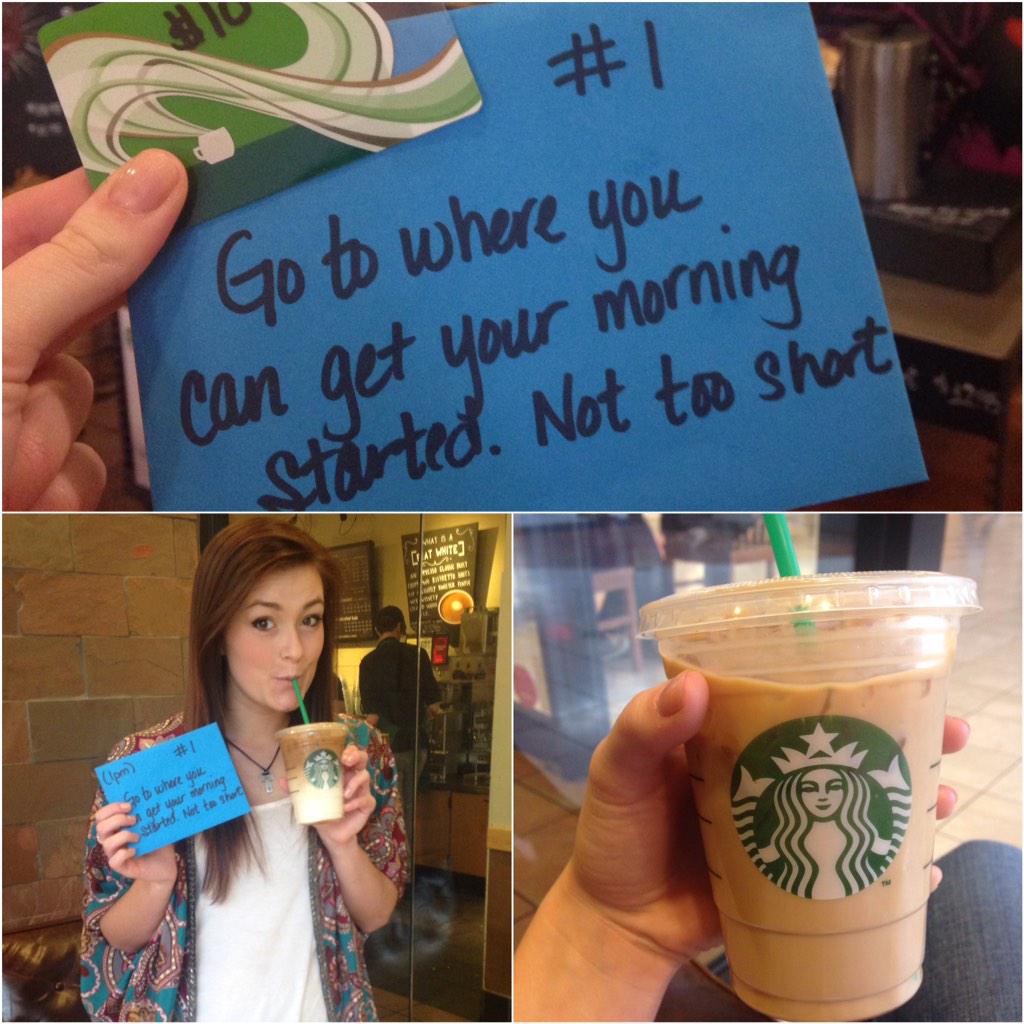 $10
#1
Go to where you
can get your morning
started. Not too short
WHAT IS A
AT WHITE
(1pm)
#1
Go to where you
get your morning
started. Not too short
TM